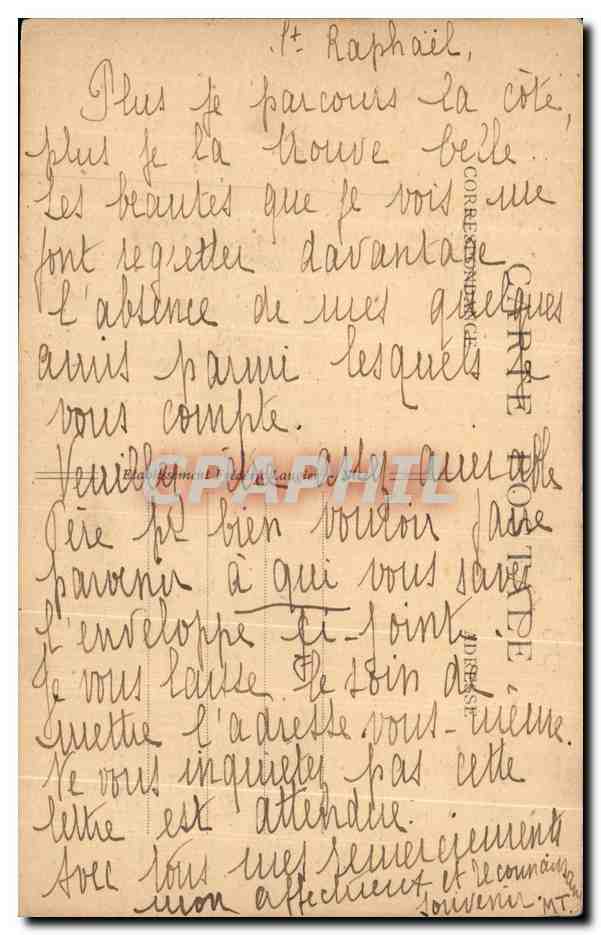 St Raphaël,
Plus je parcours la côte,
plus je la trouve belle.
Les beautés que je vois me
font regretter davantage
l'absence de mes quelques
amis parmi lesquels je
vous compte.
Veuillez être assez aimables
père pr bien vouloir faire
parvenir à qui vous savez
l'enveloppe ci-jointe.
Je vous laisse le soin de
mettre l'adresse vous-même.
Ne vous inquietez pas cette
lettre est attendue.
Avec tous mes remerciements
mon affectueux et reconnaissant
souvenir. MT.
CORRESPONDANCE
CARTE POSTALE
ADRESSE
CPAPHIL